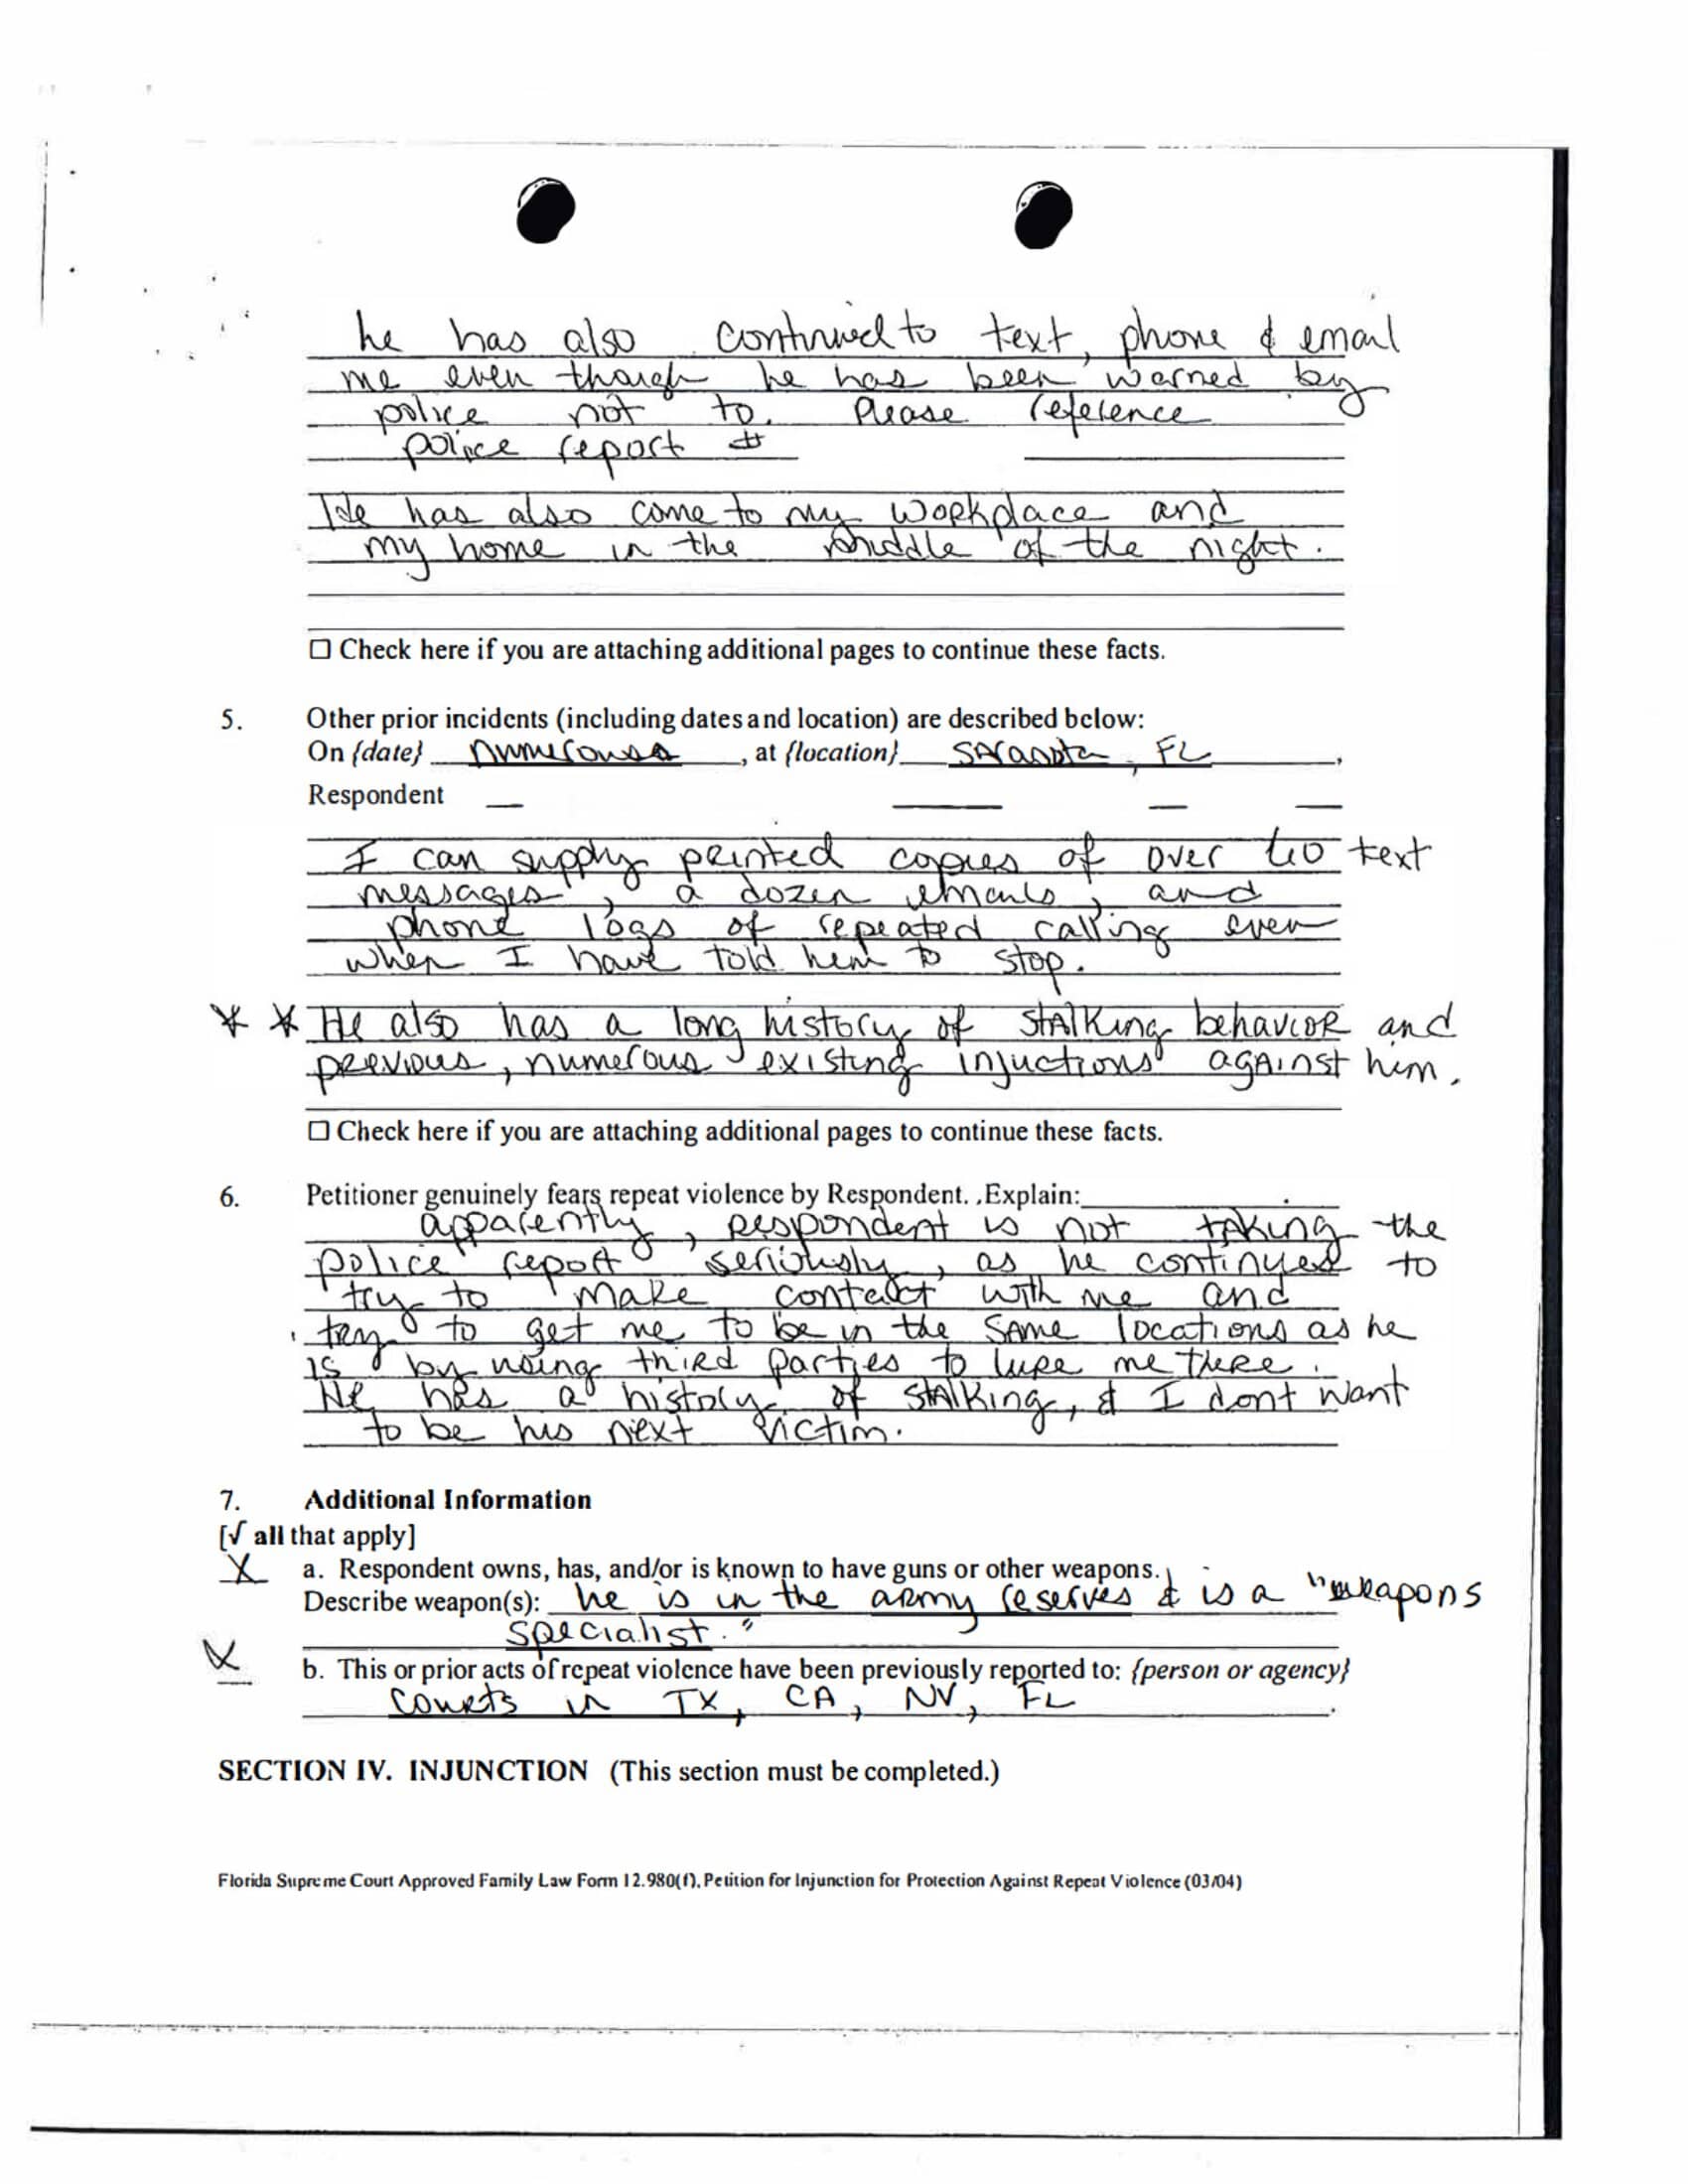 he has also continued to text, phone & email
me even though he has been warned by
police not to. Please reference
police report #
He has also come to my workplace and
my home in the middle of the night.
☐ Check here if you are attaching additional pages to continue these facts.
5. Other prior incidents (including dates and location) are described below:
On {date} numerous, at {location} Sarasota, FL,
Respondent
I can supply printed copies of over 60 text
messages, a dozen emails, and
phone logs of repeated calling even
when I have told him to stop.
* * He also has a long history of stalking behavior and
previous, numerous existing injuctions against him.
☐ Check here if you are attaching additional pages to continue these facts.
6. Petitioner genuinely fears repeat violence by Respondent. ,Explain:
apparently, respondent is not taking the
police report seriously, as he continues to
try to make contact with me and
try to get me to be in the same locations as he
is by using third parties to lure me there.
He has a history of stalking, & I dont want
to be his next victim.
7. Additional Information
[√ all that apply]
X a. Respondent owns, has, and/or is known to have guns or other weapons.
Describe weapon(s): he is in the army reserves & is a "weapons
specialist."
X b. This or prior acts of repeat violence have been previously reported to: {person or agency}
courts in TX, CA, NV, FL.
SECTION IV. INJUNCTION (This section must be completed.)
Florida Supreme Court Approved Family Law Form 12.980(f), Petition for Injunction for Protection Against Repeat Violence (03/04)